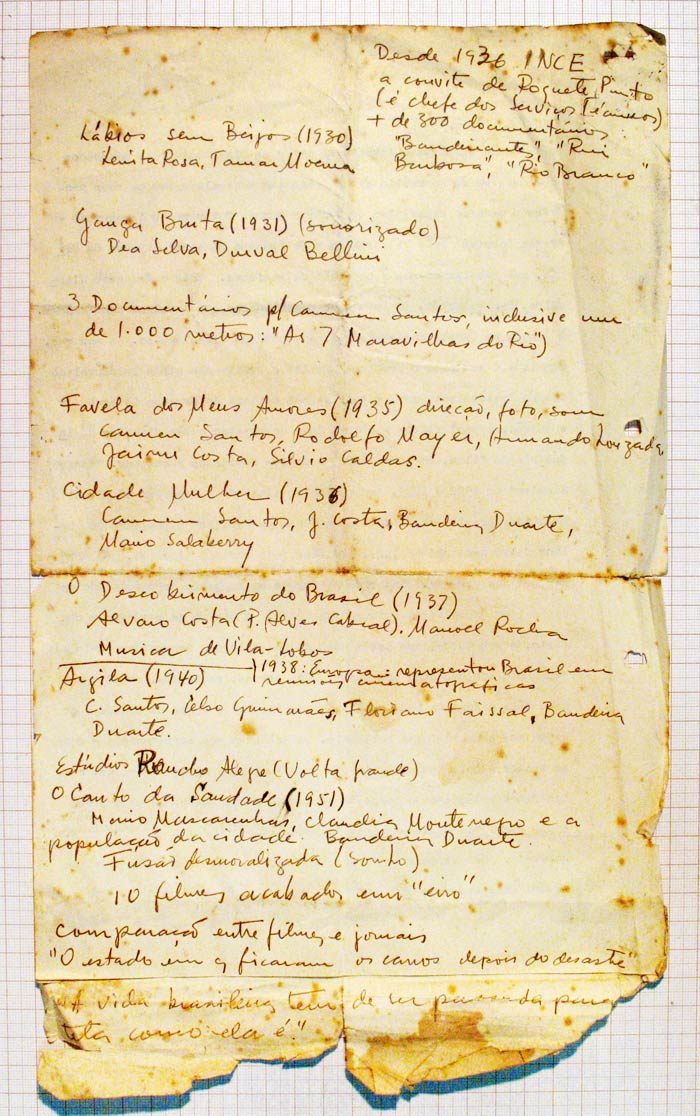 Desde 1936 INCE
a convite de Roquete Pinto
(é chefe dos Serviços Técnicos)
+ de 300 documentários:
"Bandeirantes", "Rui
Barbosa", "Rio Branco"
Lábios sem Beijos (1930)
Lenita Rosa, Tamar Moema
Ganga Bruta (1931) (sonorizado)
Dea Selva, Durval Bellini
3 Documentários p/ Carmen Santos, inclusive um
de 1.000 metros: "As 7 Maravilhas do Rio")
Favela dos Meus Amores (1935) direção, foto, som
Carmen Santos, Rodolfo Mayer, Armando Louzada,
Jaime Costa, Silvio Caldas.
Cidade Mulher (1936)
Carmen Santos, J. Costa, Bandeira Duarte,
Mario Salaberry
O Descobrimento do Brasil (1937)
Alvaro Costa (P. Alves Cabral). Manoel Rocha
Musica de Vila-Lobos
1938: Europa: representou Brasil em
reuniões cinematograficas
Argila (1940)
C. Santos, Celso Guimarães, Floriano Faissal, Bandeira
Duarte.
Estúdios Rancho Alegre (Volta grande)
O Canto da Saudade (1951)
Mario Mascarenhas, Claudia Montenegro e a
população da cidade. Bandeira Duarte.
Fusão desmoralizada (Sonho)
10 filmes acabados em "eiro"
comparação entre filmes e jornais
"O estado em q ficaram os carros depois do desastre"
"A vida brasileira tem de ser passada para
tela como ela é."